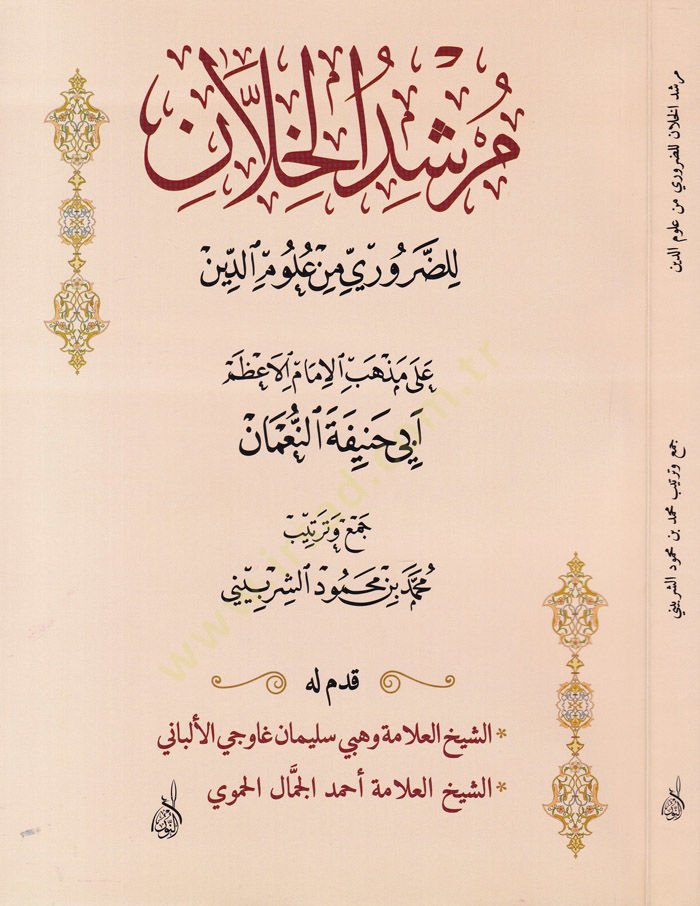 مُرْشِدُ الخِلَّانِ
لِلضَّرُورِيِّ مِنْ عُلُومِ الدِّينِ
عَلَى مَذْهَبِ الإِمَامِ الأَعْظَمِ
أَبِي حَنِيفَةَ النُّعْمَانِ
جَمْعُ وَتَرْتِيبُ
مُحَمَّد بْنِ مَحْمُود الشِّرْبِينِي
قدم له
* الشيخ العلامة وهبي سليمان غاوجي الألباني
* الشيخ العلامة أحمد الجمَّال الحموي
مرشد الخلان للضروري من علوم الدين
جمع وترتيب محمد بن محمود الشربيني